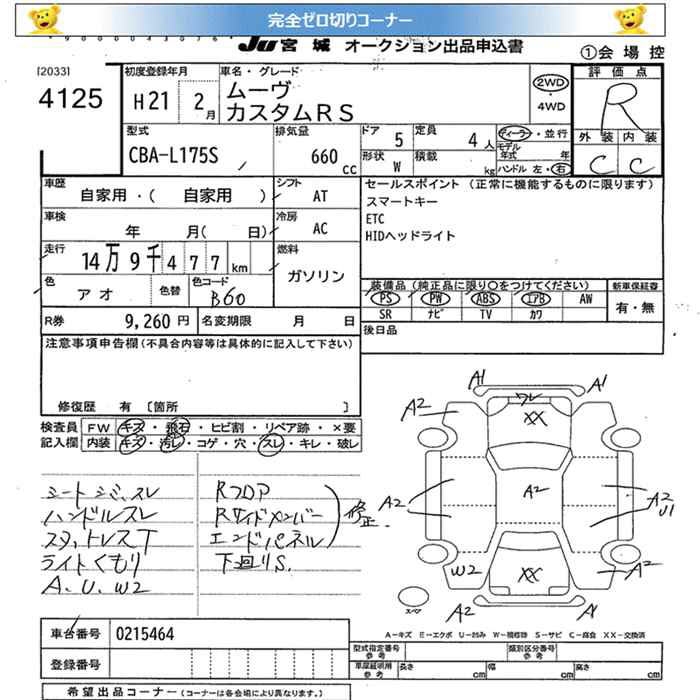 完全ゼロ切りコーナー
JU宮城 オークション出品申込書
①会場控
[2033]
4125
初度登録年月
H21 2月
車名・グレード
ムーヴ
カスタムRS
2WD
・4WD
評価点
R
外装 内装
C C
型式
CBA-L175S
排気量
660 cc
ドア 5
定員 4人
形状 W
積載 kg
ディーラー・並行
モデル年式 年
ハンドル 左・右
車歴
自家用・( 自家用 )
シフト
AT
車検
年 月( 日)
冷房
AC
走行
14万9千477km
燃料
ガソリン
色
アオ
色替
色コード
B60
R券 9,260円
名変期限 月 日
セールスポイント (正常に機能するものに限ります)
スマートキー
ETC
HIDヘッドライト
装備品 (純正品に限り○をつけてください)
新車保証書
PS PW ABS エアB AW
有・無
SR ナビ TV カワ
後日品
注意事項申告欄(不具合内容等は具体的に記入して下さい)
修復歴 有 〔箇所 〕
検査員記入欄
FW キズ・飛石・ヒビ割・リペア跡・×要
内装 キズ・汚レ・コゲ・穴・スレ・キレ・破レ
シートシミ、スレ
ハンドルスレ
スタットレスT
ライトくもり
A.U.W2
Rフロア
Rサイドメンバー
エンドパネル
修正
下廻りS.
A1 A1
ワレ
A2
XX
A2
A2
A2
U1
W2
XX
A2
A2
A1
スペア
A-キズ E-エクボ U-凹み W-補修跡 S-サビ C-腐食 XX-交換済
車台番号 0215464
登録番号
型式指定番号 参考
類別区分番号 参考
車庫証明用 参考
長さ cm
幅 cm
高さ cm
希望出品コーナー(コーナーは各会場により異なります。)